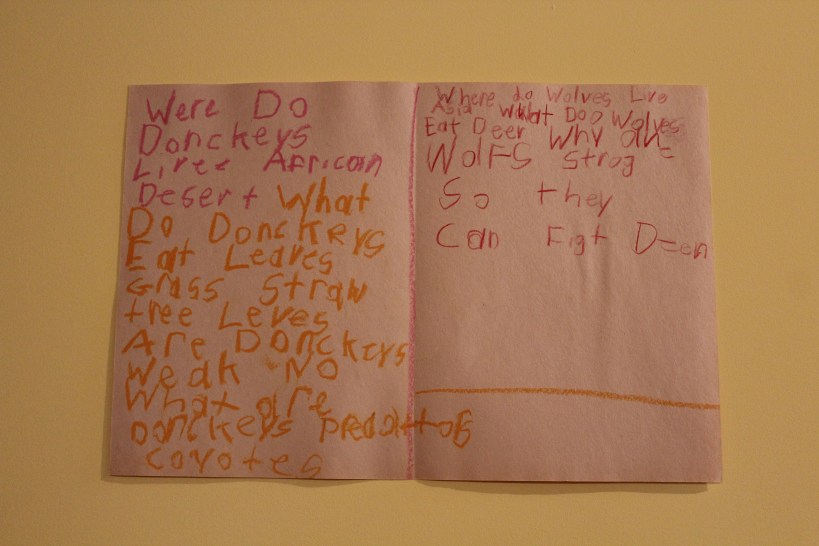 Were Do
Donckeys
Live African
Desert What
Do Donckeys
Eat Leaves
Grass Straw
tree Leves
Are Donckeys
Weak No
What are
Donckeys predattor
coyotes
Where do Wolves Live
Asia What Doo Wolves
Eat Deer Why are
Wolfs Strog
So they
Can Figt Deer